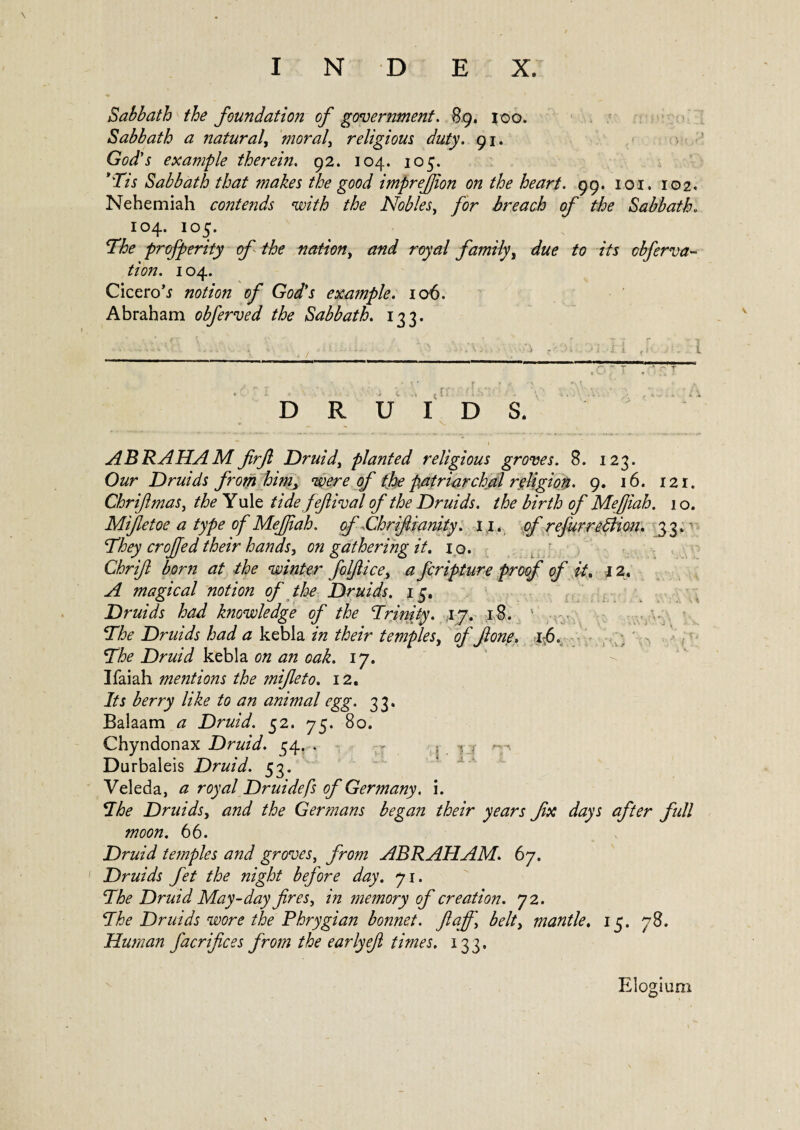 INDEX.
Sabbath the foundation of government. 89. 100.
Sabbath a natural, moral, religious duty. 91.
God's example therein. 92. 104. 105.
'Tis Sabbath that makes the good impreſſion on the heart. 99. 101. 102.
Nehemiah contends with the Nobles, for breach of the Sabbath.
104. 105.
The proſperity of the nation, and royal family, due to its obſerva-
tion. 104.
Cicero's notion of God's example. 106.
Abraham obſerved the Sabbath. 133.
DRUIDS.
ABRAHAM firſt Druid, planted religious groves. 8. 123.
Our Druids from him, were of the patriarchal religion. 9. 16. 121.
Chriſtmas, the Yule tide feſtival of the Druids. the birth of Meſſiah. 10.
Miſletoe a type of Meſſiah. of Chriſtianity. 11. of reſurrection. 33.
They croſſed their hands, on gathering it. 10.
Chriſt born at the winter ſolſtice, a ſcripture proof of it. 12.
A magical notion of the Druids. 15.
Druids had knowledge of the Trinity. 17. 18.
The Druids had a kebla in their temples, of ſtone. 16.
The Druid kebla on an oak. 17.
Iſaiah mentions the miſleto. 12.
Its berry like to an animal egg. 33.
Balaam a Druid. 52. 75. 80.
Chyndonax Druid. 54.
Durbaleis Druid. 53.
Veleda, a royal Druideſs of Germany. i.
The Druids, and the Germans began their years ſix days after full
moon. 66.
Druid temples and groves, from ABRAHAM. 67.
Druids ſet the night before day. 71.
The Druid May-day fires, in memory of creation. 72.
The Druids wore the Phrygian bonnet. ſtaff, belt, mantle. 15. 78.
Human ſacrifices from the earlyeſt times. 133.
Elogium